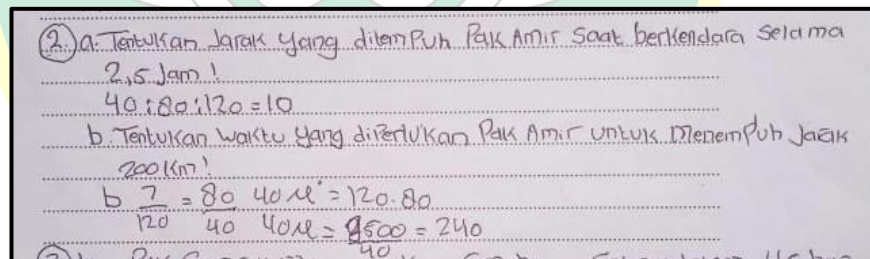 2. a. Tentukan Jarak yang ditemPuh Pak Amir saat berkendara selama
2,5 Jam !
40 : 80 : 120 = 10
b. Tentukan waktu yang diPerlukan Pak Amir untuk menemPuh Jarak
200 Km !
b ?/120 = 80/40 40x = 120.80
40x = 9600/40 = 240